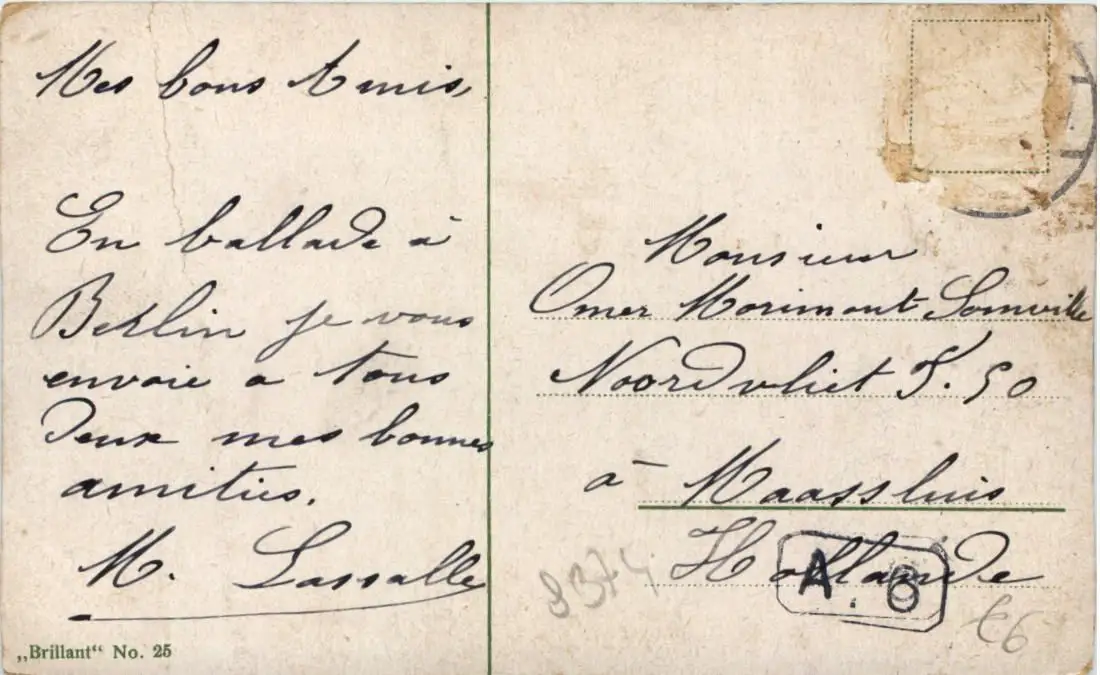 Mes bons Amis,
En ballade à
Berlin je vous
envoie a tous
deux mes bonnes
amitiés.
M. Lassalle
„Brillant“ No. 25
Monsieur
Omer Morimont Somville
Noordvliet S. 50
à Maassluis
Hollande
A. 8
8374
€6